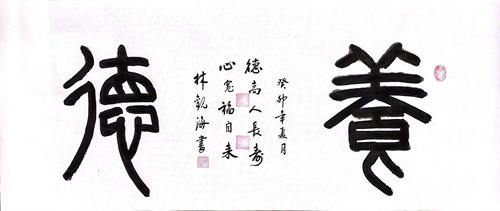 養
癸卯年夏月
德高人長寿
心寬福自来
林觀海書
德